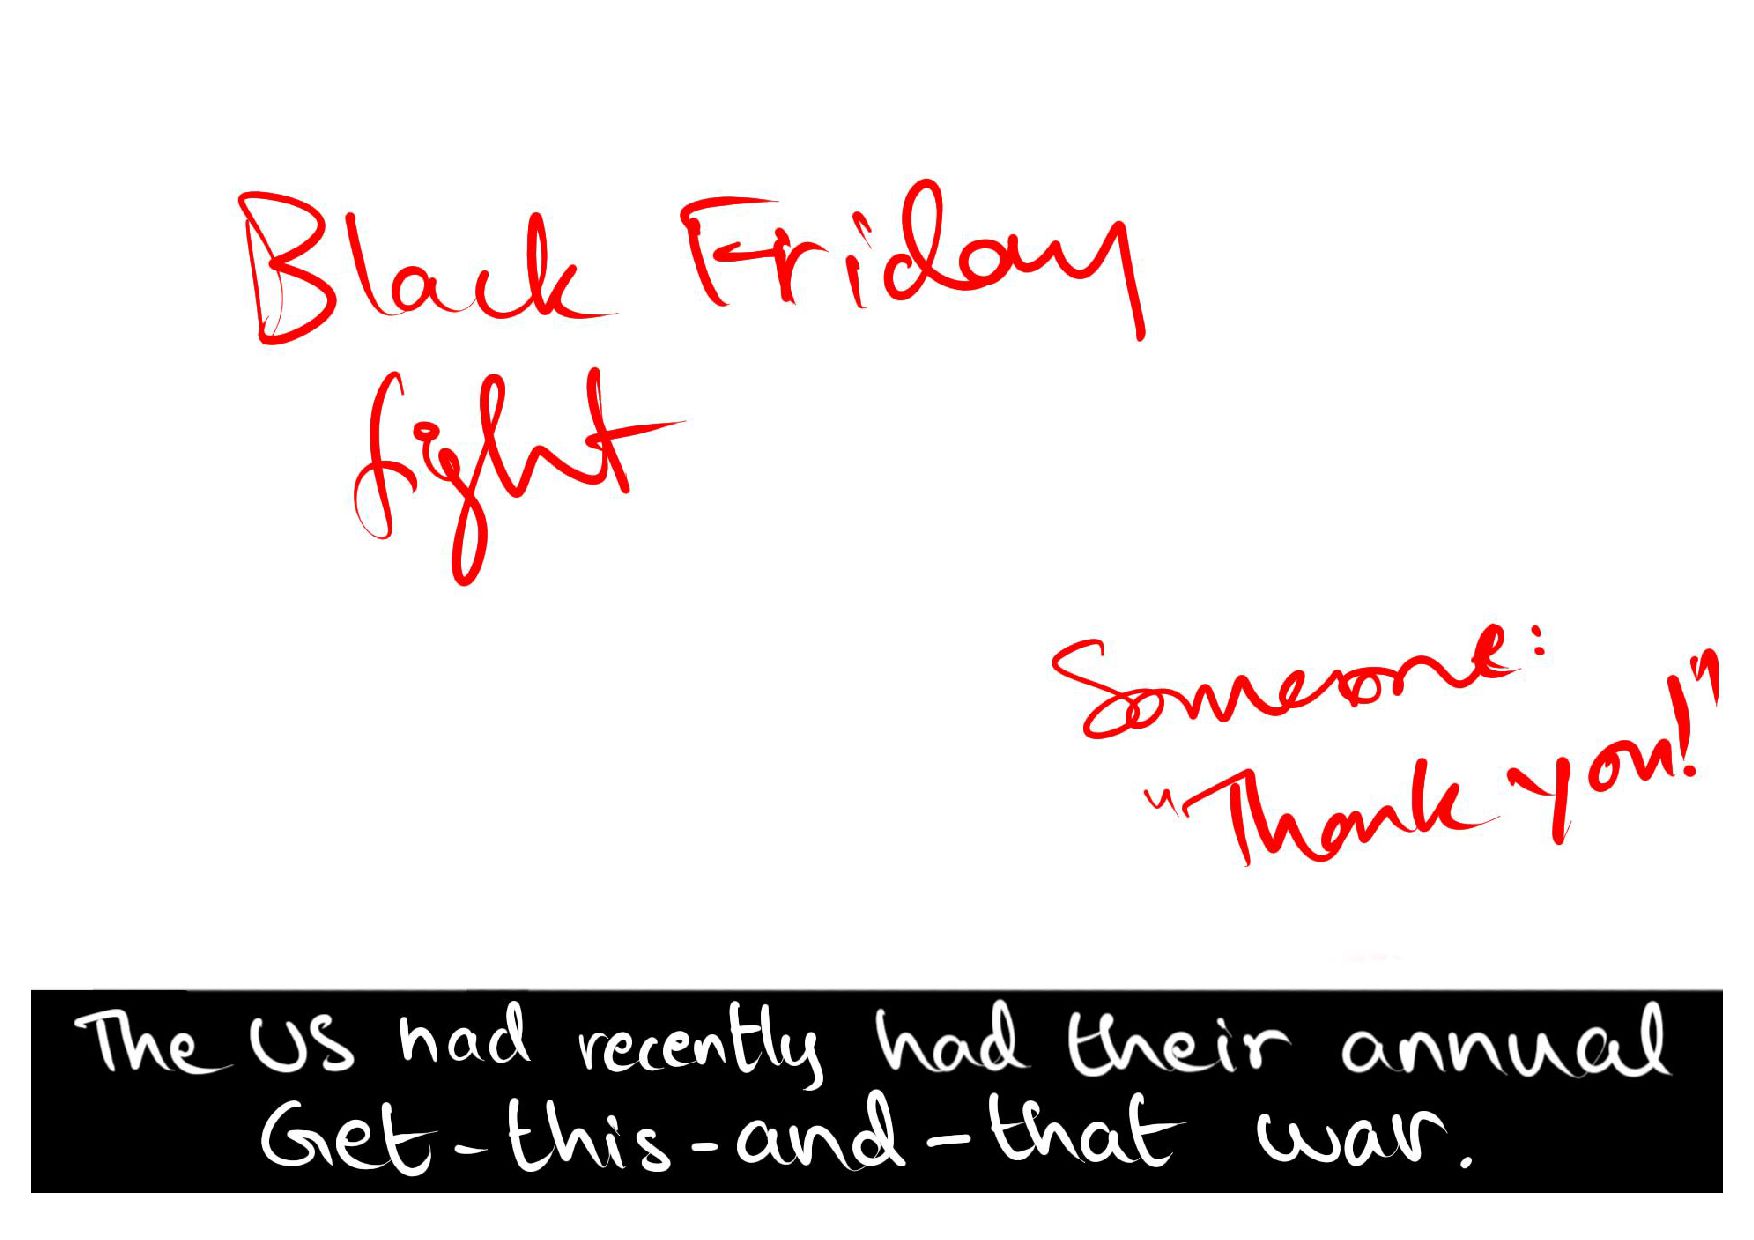 Black Friday
fight
Someone:
"Thank you!"
The US had recently had their annual
Get-this-and-that war.